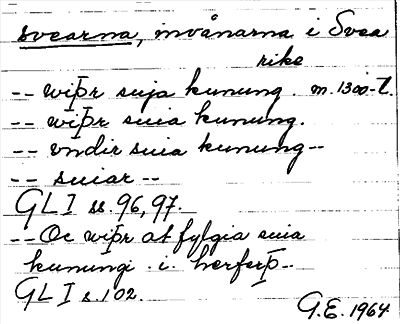 svearna, invånarna i Svea
rike
-- wiþr suja kunung. m. 1300-t.
-- wiþr suia kunung.
-- vndir suia kunung --
-- suiar --
GLI ss. 96, 97.
-- Oc wiþr at fylgia suia
kunungi . i . herferþ --
GLI s. 102.
G.E. 1964.